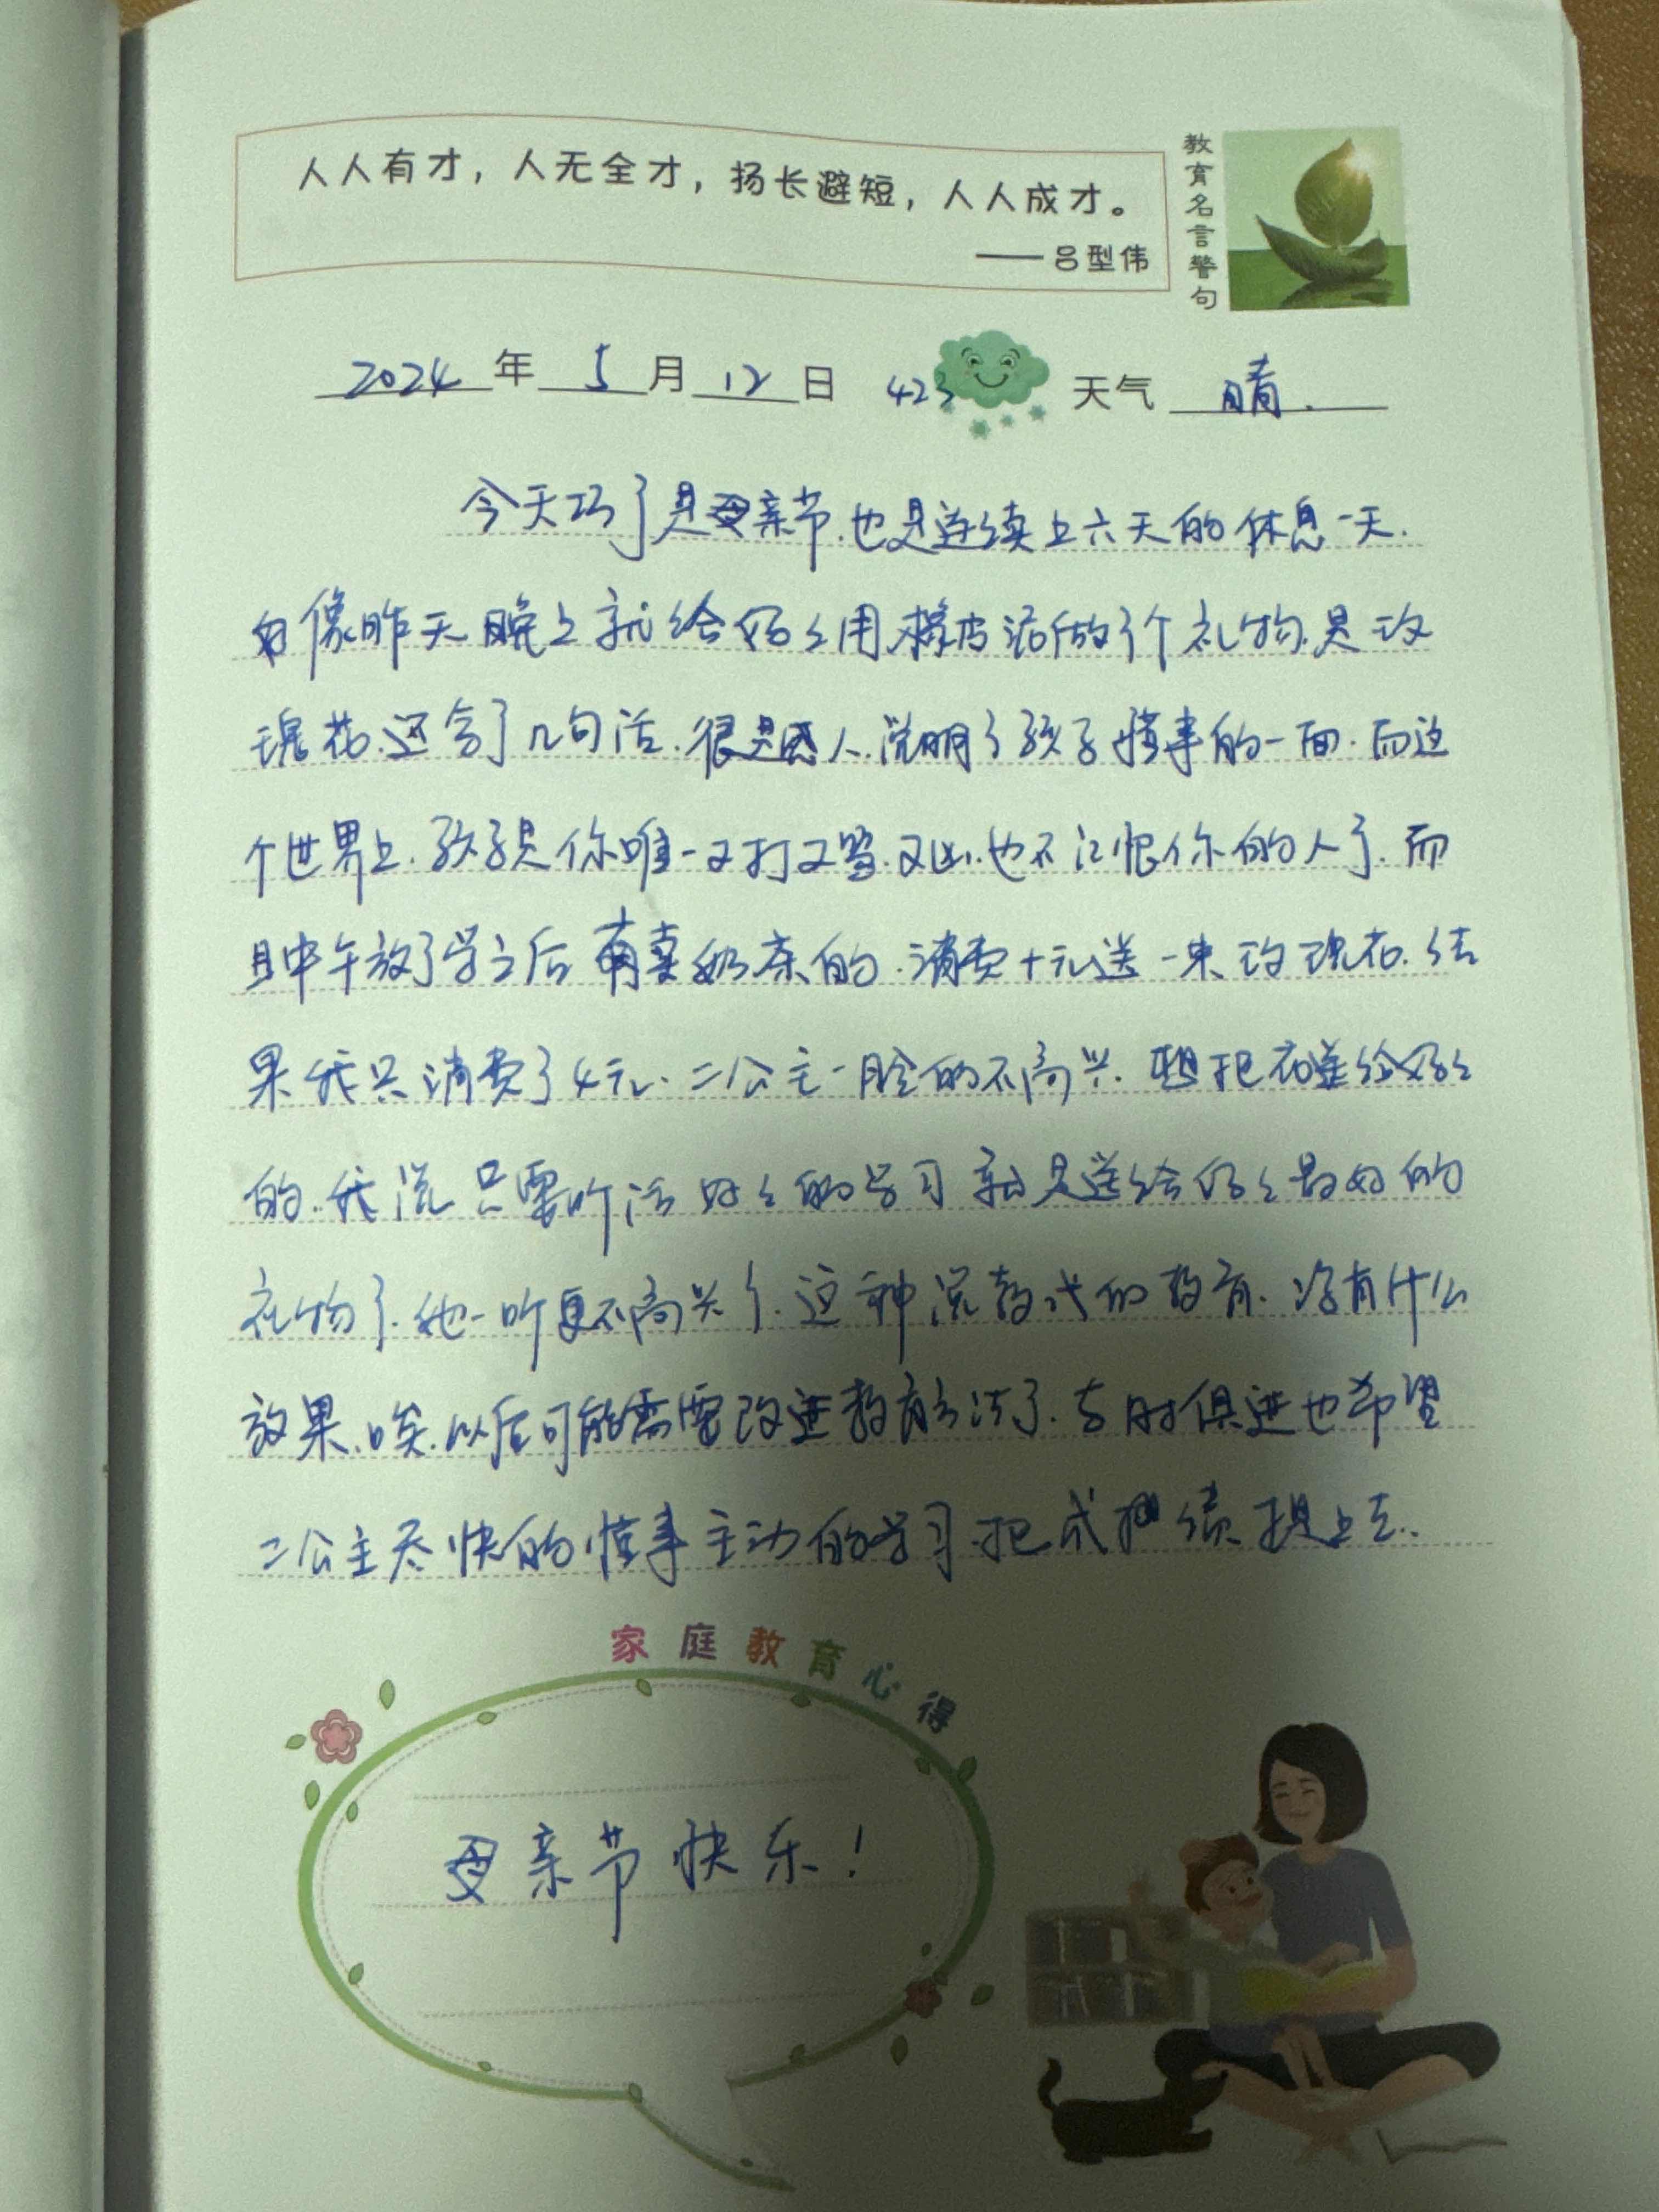 人人有才，人无全才，扬长避短，人人成才。
——吕型伟
教育名言警句
2024年5月12日 423 天气 晴.
今天巧了是母亲节.也是连续上六天的休息一天.
像昨天晚上就给妈妈用橡皮泥做了个礼物.是玫
瑰花.还写了几句话.很是感人.说明了孩子懂事的一面.而这
个世界上.孩子是你唯一又打又骂.又凶.也不记恨你的人了.而
且中午放了学之后有卖奶茶的.消费十元送一束玫瑰花.结
果我只消费了4元.二公主一脸的不高兴.想把花送给妈妈
的.我说只要听话好好的学习就是送给妈妈最好的
礼物了.她一听更不高兴了.这种说教式的教育.没有什么
效果.唉.以后可能需要改进教育方法了.与时俱进也希望
二公主尽快的懂事主动的学习.把成绩提上去..
家庭教育心得
母亲节快乐！